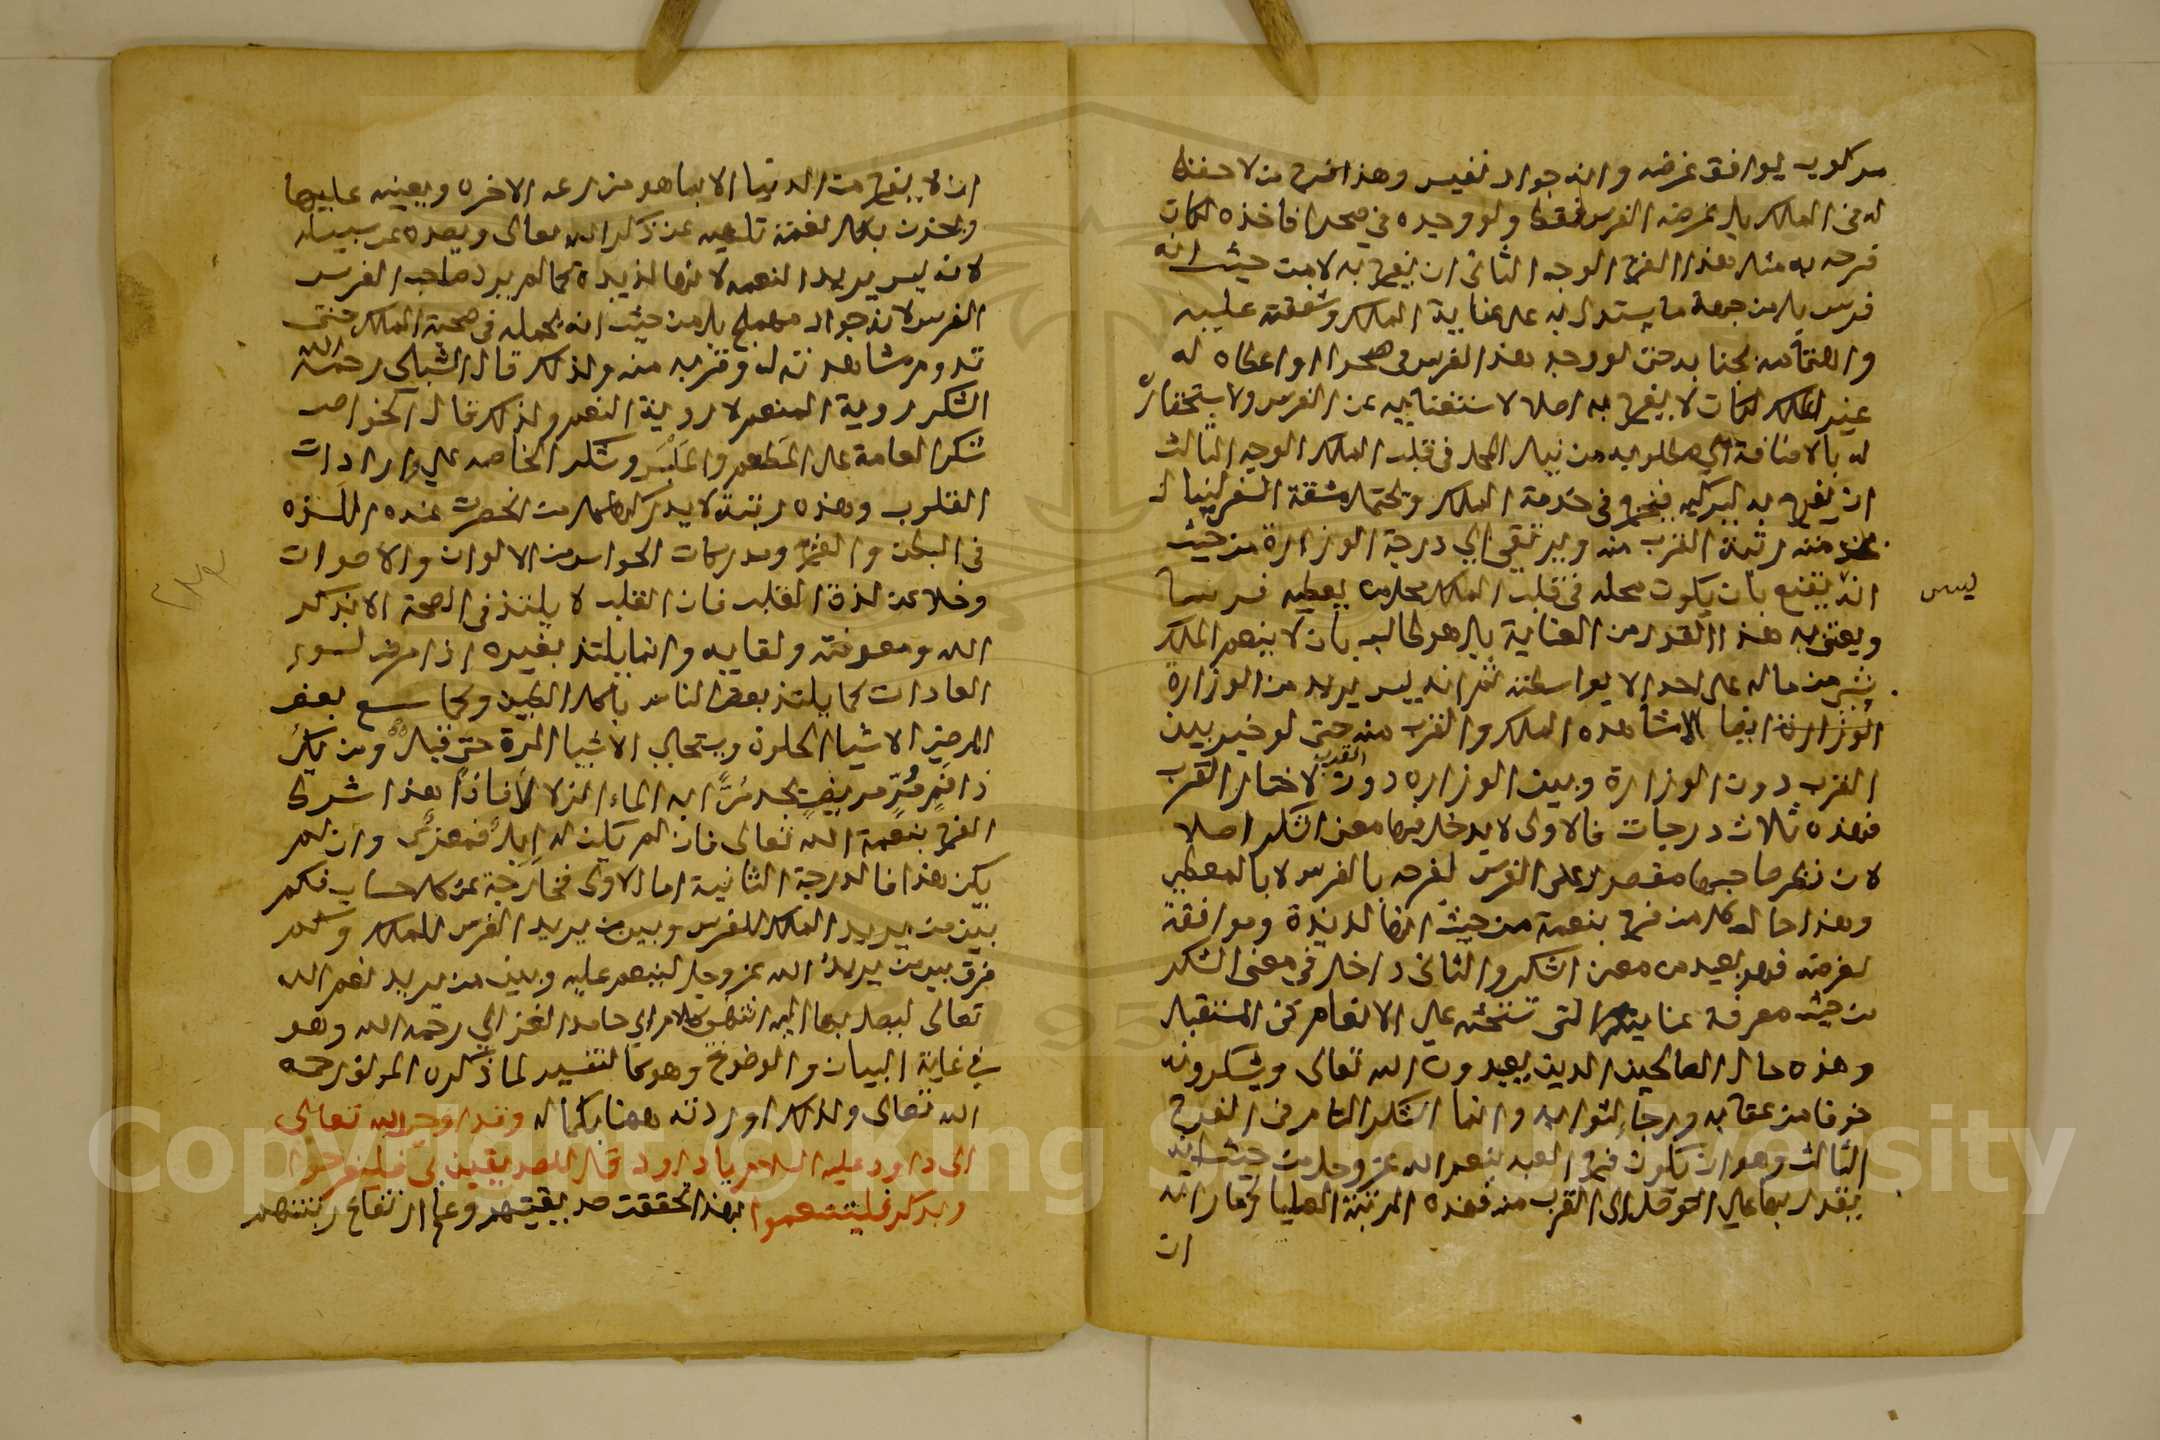 مركوب يوافق غرضه وانه جواد نفيس وهذا فرح من لا حظ
له في الملك بل غرضه الفرس فقط ولو وجده في صحرا فاخذه لكان
فرحه به مثل هذا الفرح الوجه الثاني ان يفرح به لا من حيث انه
فرس بل من جهة ما يستدل به على عناية الملك وشفقته عليه
واهتمامه بجنابه حتى لو وجد هذا الفرس في صحرا او اعطاه له
غير الملك لكان لا يفرح به اصلا لاستغنايه عن الفرس ولاستحقاره
له بالاضافة الى مطلوبه من نيل المحل في قلب الملك الوجه الثالث
ان يفرح به ليركبه فيخرج في خدمة الملك وتحتمل مشقة السفر لينال
منه رتبة القرب منه ويرتقي الى درجة الوزارة من حيث
انه يقنع بان يكون محله في قلب الملك محل من يعطيه فرسا
ليس
ويعتني به هذا القدر من العناية بل هو طالب بان لا ينعم الملك
بشي من ماله على احد الا بواسطته ثم انه ليس يريد من الوزارة
الوزارة ايضا الا مشاهده الملك والقرب منه حتى لو خير بين
القرب دون الوزارة وبين الوزاره دون القرب لاختار القرب
فهذه ثلاث درجات فالاولى لا يدخل فيها معنى الشكر اصلا
لان نظر صاحبها مقصور على الفرس لفرحه بالفرس لا بالمعطي
وهذا حال كل من فرح بنعمة من حيث انها لذيذة وموافقة
لغرضه فهو بعيد من معنى الشكر والثاني داخل في معنى الشكر
من حيث معرفة عنايته التي تستحثه على الانعام في المستقبل
وهذه حال الصالحين الذين يعبدون الله تعالى ويشكرونه
خوفا من عقابه ورجاء لثوابه وانما الشكر التام في الفرح
الثالث وهو ان يكون فرح العبد بنعم الله عز وجل من حيث انه
يقدر بها على التوصل الى القرب منه فهذه المرتبة العليا وامارته
ان
ان لا يفرح من الدنيا الا بما هو مزرعه الاخره ويعينه عليها
ويحزن بكل نعمة تلهيه عن ذكر الله تعالى وتصده عن سبيله
لانه ليس يريد النعمه لانها لذيذة كما لم يرد صاحب الفرس
الفرس لانه جواد مهملج بل من حيث انه يحمله في صحبة الملك حتى
تدوم مشاهدته له وقربه منه ولذلك قال الشبلي رحمه الله
الشكر روية المنعم لا روية النعم ولذلك قال الخواص
شكر العامة على المطعم والملبس وشكر الخاصه على واردات
القلوب وهذه رتبة لا يدركها كل من انحصرت عنده اللذه
في البطن والفرج ومدركات الحواس من الالوان والاصوات
وخلا عن لذة القلب فان القلب لا يلتذ في الصحة الا بذكر
الله ومعرفته ولقايه وانما يلتذ بغيره اذا مرض لسوء
العادات كما يلتذ بعض الناس باكل الطين وكما يستبشع بعض
المرضى الاشيا الحلوة ويستحلي الاشيا المرة حتى قيل ومن يك
ذا فم مر مريض يجد مرا به الماء الزلالا فاذا هذا شرط
الفرح بنعمة الله تعالى فان لم يكن له ابل فمعزى وان لم
يكن هذا فالدرجة الثانية اما الاولى فخارجة عن كل حساب فكم
بين من يريد الملك للفرس وبين من يريد الفرس للملك وكم
فرق بين من يريد الله عز وجل لينعم عليه وبين من يريد نعم الله
تعالى ليصل بها اليه انتهى كلام ابي حامد الغزالي رحمه الله وهو
في غاية البيان والوضوح وهو كالتفسير لما ذكره المولف رحمه
الله تعالى ولذلك اوردته ههنا بكماله وقد اوحى الله تعالى
الى داود عليه السلام يا داود قل للصديقين بي فليفرحوا
وبذكري فليتنعموا بهذا تحققت صديقيتهم وعلم ارتفاع رتبتهم